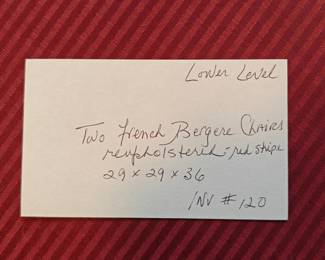 Lower Level
Two French Bergere Chairs
reupholstered - red stripe
29 x 29 x 36
INV # 120